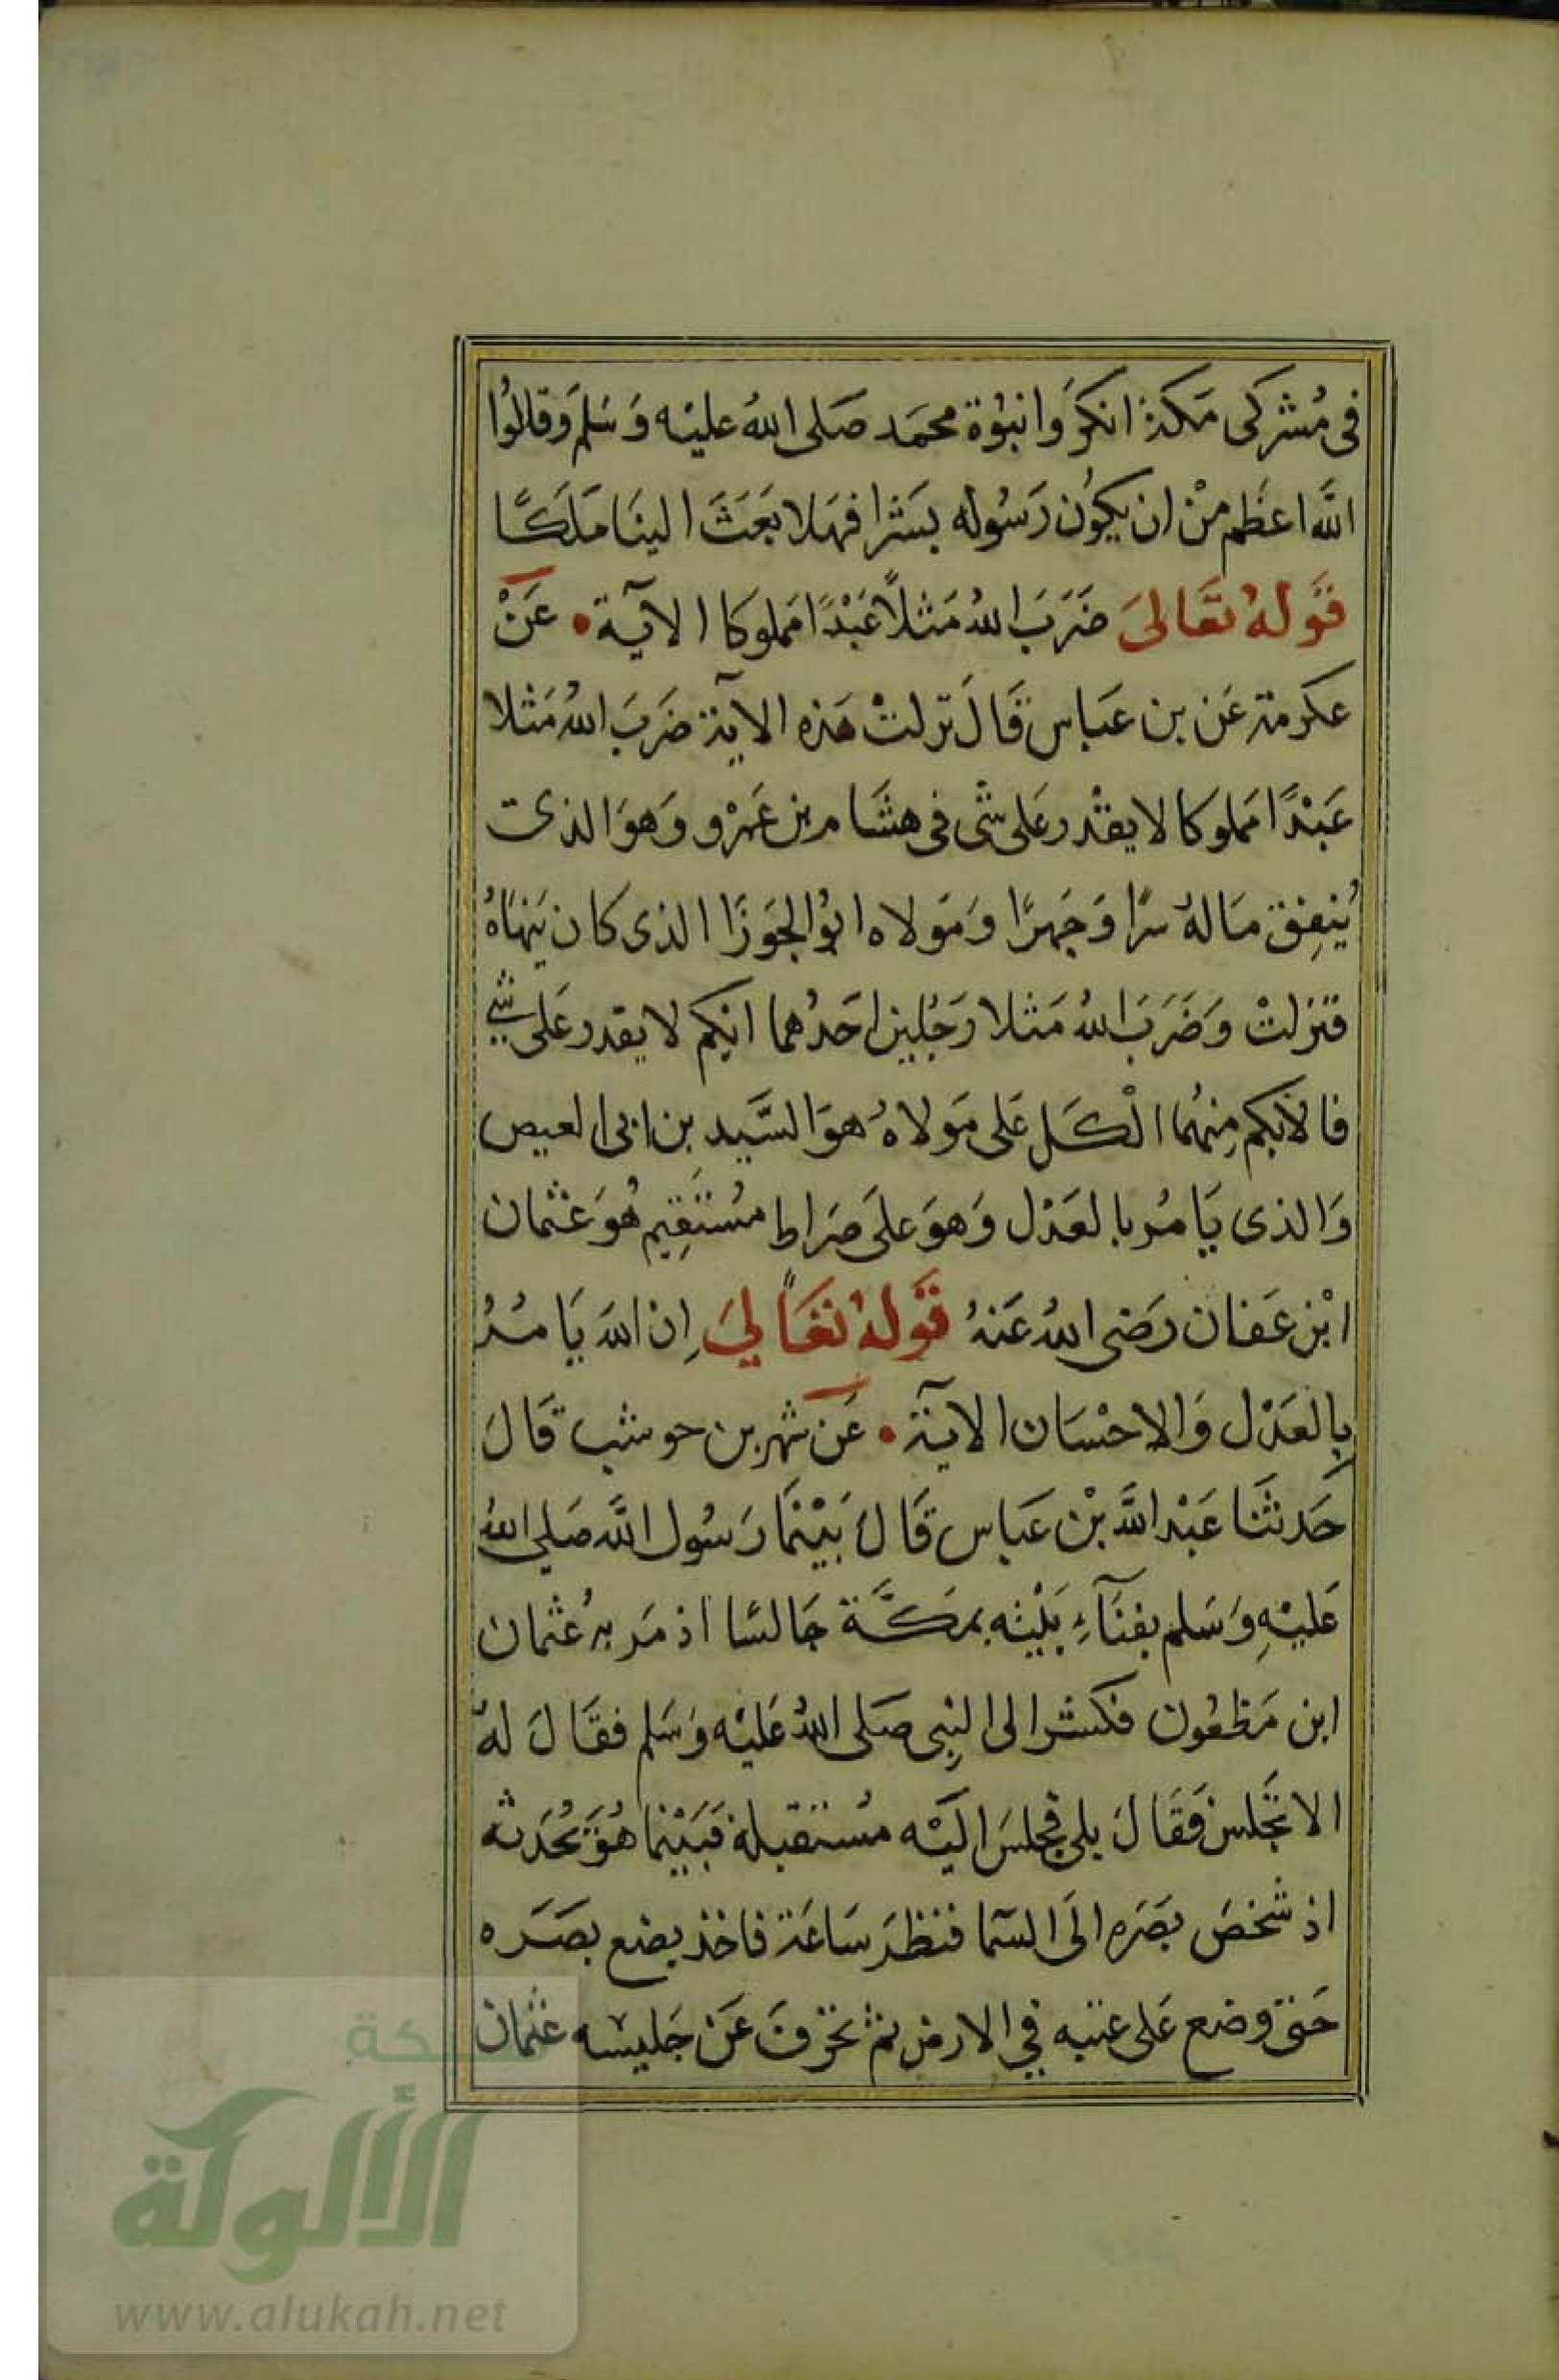 فى مُشركى مَكة انكرَوا نبوُة محمَد صَلى اللهُ عليْه وَسَلم وَقالوُا
اللَّه اعظَم منْ ان يكوُن رَسُوله بَشرا فهَلا بَعَثَ الينَا مَلَكًا
قَوله تعَالىَ ضَرَبَ اللهُ مَثلاً عَبْدًا مَملوكا الآية • عَنْ
عكرمة عَن بن عَباس قَالَ نزلتْ هَذه الآية ضَرَبَ اللهُ مَثلا
عَبْدًا مَملوكا لا يقدْر عَلى شَى فى هشَام بن عَمْرو وَهوَ الذى
يُنفِق مَالهُ سرًا وَجَهرًا وَمَولاه ابوُ الجوَزا الذى كان يَنهَاهُ
فنزلتْ وَضَرَبَ اللهُ مَثلا رَجُلين احَدُهما ابكم لا يقدر عَلى شي
فالابكم مِنهُما الْكَل عَلى مَولاهُ هوَ السَّيد بن ابى العيص
وَالذى يَامُر بالعَدْل وَهوَ علَى صَراط مسُتَقِيم هُوَ عَثمان
ابْن عَفان رَضى اللهُ عَنهُ قَولهُ تعَالي اِن اللهَ يَامُرُ
بِالعَدْل وَالاحْسَان الآية • عَن شهر بن حوشب قَالَ
حَدثنَا عَبْد اللَّه بْن عَباس قَالَ بَيْنمَا رَسُول اللَّه صَلي اللهُ
عَليْهِ وَسَلم بفنَآءِ بَيْتِه بمَكَّة جَالسًا اذ مَر بهُ عُثمان
ابن مَظعُون فكشر الى النبِى صَلى اللهُ عَليْه وَسَلم فقَالَ لهُ
الا تجَلس فَقَالَ بلى فجلسَ اليَه مسُتقبله فَبَيْنما هُوَ يحُدَثه
اذ شَخصَ بَصَره الَى السَما فنَظرَ سَاعَة فاخذ يضع بصَرَه
حَتى وضع عَلى عتبه في الارض ثم تحرفَ عَن جَليسه عثمان
شبكة
الألوكة
www.alukah.net